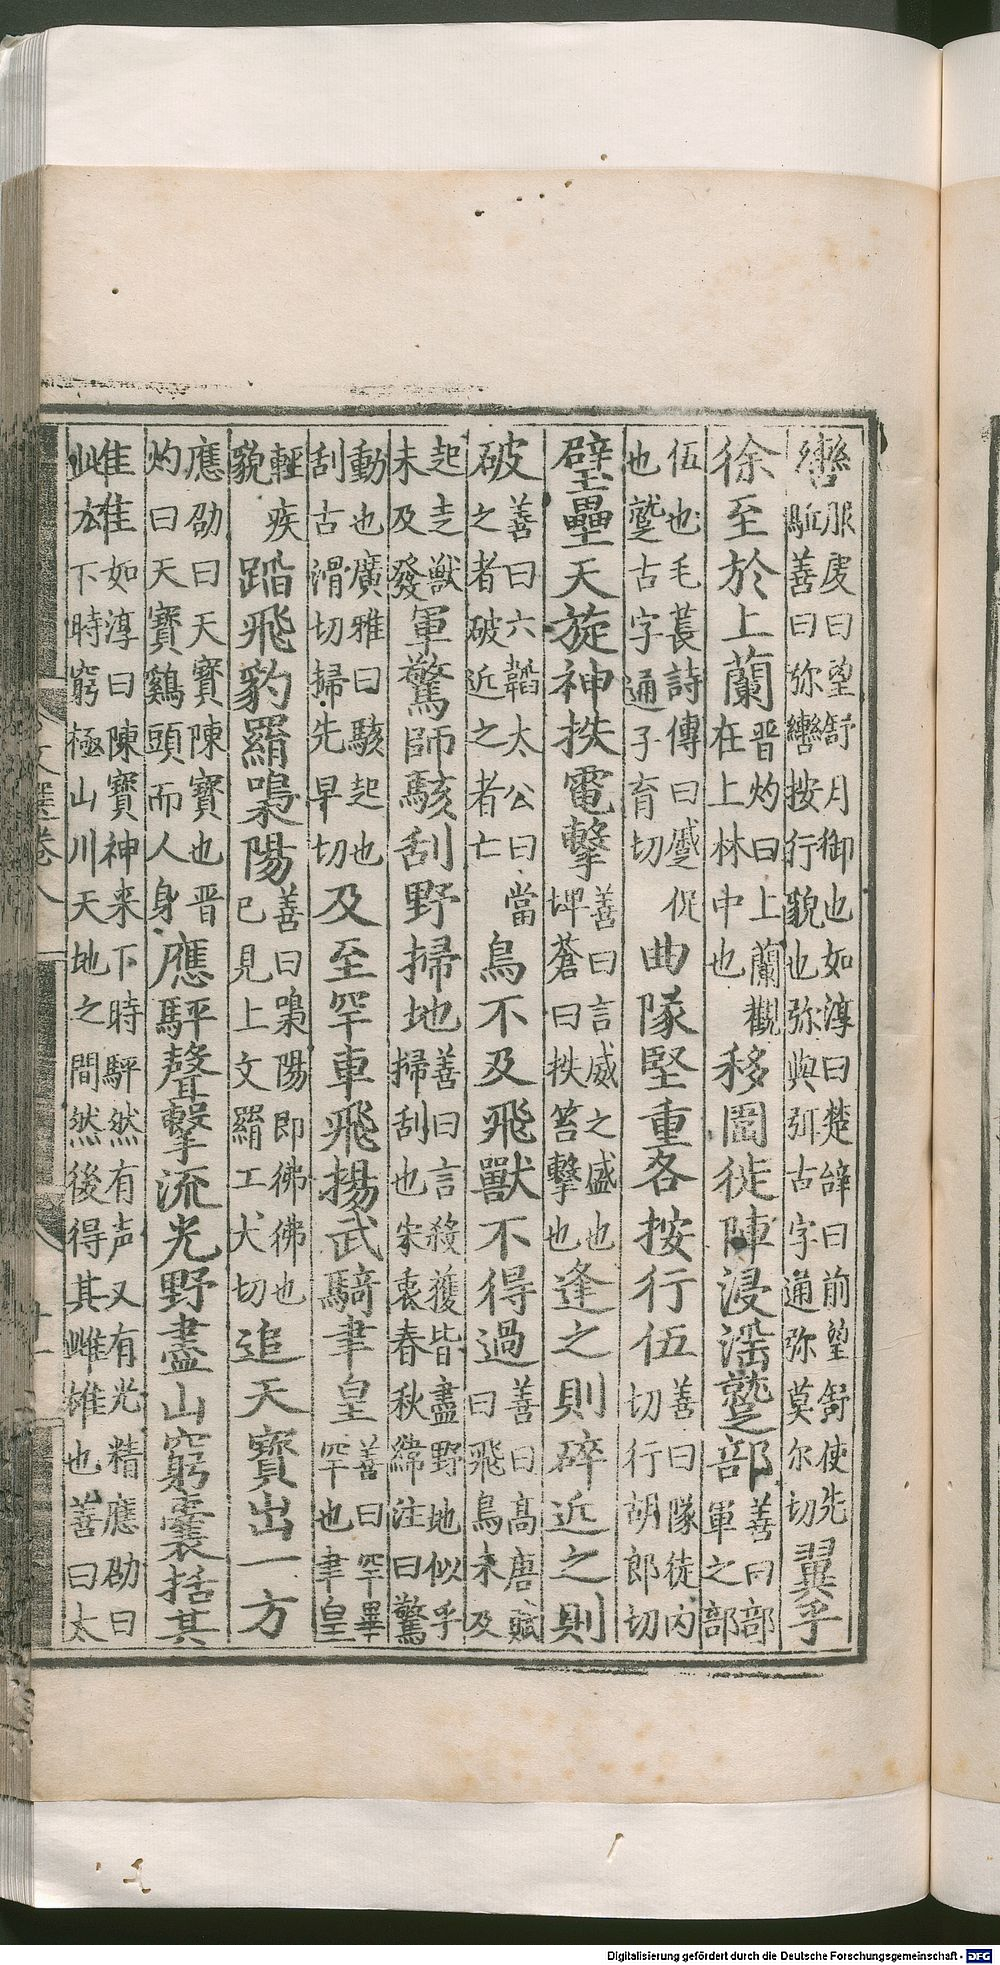 轡服虔曰望舒月御也如淳曰楚辭曰前望舒使先駈善曰弥轡按行貌也弥與弭古字通弥莫尔切翼乎
徐至於上蘭晋灼曰上蘭觀在上林中也移圍徙陣浸滛蹵部善曰部軍之部
伍也毛萇詩傳曰蹙促也蹵古字通子育切曲隊堅重各按行伍善曰隊徒内切行胡郎切
壁壘天旋神抶電擊善曰言威之盛也埤蒼曰抶笞擊也逢之則碎近之則
破善曰六韜太公曰當之者破近之者亡鳥不及飛獸不得過善曰髙唐賦曰飛鳥未及
起走獸未及發軍驚師駭刮野掃地善曰言殺獲皆盡野地似乎掃刮也宋衷春秋緯注曰驚
動也廣雅曰駭起也刮古滑切掃先早切及至罕車飛揚武騎聿皇善曰罕畢罕也聿皇
輕疾貌蹈飛豹羂噪陽善曰噪陽即彿彿也已見上文羂工犬切追天寳出一方
應劭曰天寳陳寳也晋灼曰天寳鷄頭而人身應駍聲擊流光野盡山窮囊括其
雌雄如淳曰陳寳神来下時駍然有声又有光精應劭曰此亦下時窮極山川天地之間然後得其雌雄也善曰太
文選卷八
十一
Digitalisierung gefördert durch die Deutsche Forschungsgemeinschaft - DFG